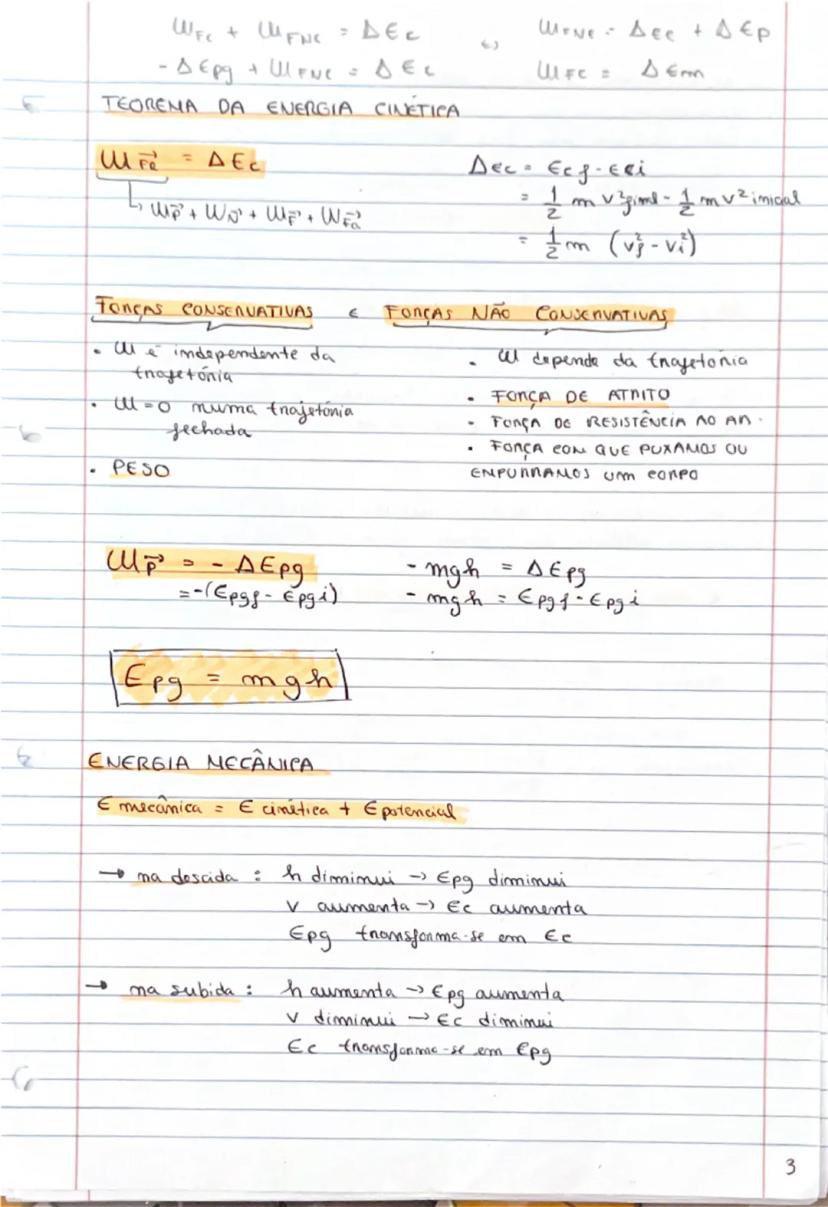 W Fc + W FNC = ΔEc ⇔ W FNC = ΔEc + ΔEp
- ΔEpg + W FNC = ΔEc W FC = ΔEm
TEOREMA DA ENERGIA CINÉTICA
W F⃗R = ΔEc
↳ W P⃗ + W N⃗ + W F⃗ + W F⃗a
ΔEc = Ecf - Eci
= 1/2 m v² final - 1/2 m v² inicial
= 1/2 m (vf² - vi²)
FORÇAS CONSERVATIVAS E FORÇAS NÃO CONSERVATIVAS
• W é independente da
trajetória
• W = 0 numa trajetória
fechada
• PESO
• W depende da trajetória
• FORÇA DE ATRITO
• FORÇA DE RESISTÊNCIA AO AR.
• FORÇA COM QUE PUXAMOS OU
EMPURRAMOS UM CORPO
W P⃗ = - ΔEpg
= -(Epgf - Epgi)
- mgh = ΔEpg
- mgh = Epgf - Epgi
Epg = mgh
ENERGIA MECÂNICA
E mecânica = E cinética + E potencial
→ na descida : h diminui → Epg diminui
v aumenta → Ec aumenta
Epg transforma-se em Ec
→ na subida : h aumenta → Epg aumenta
v diminui → Ec diminui
Ec transforma-se em Epg
3